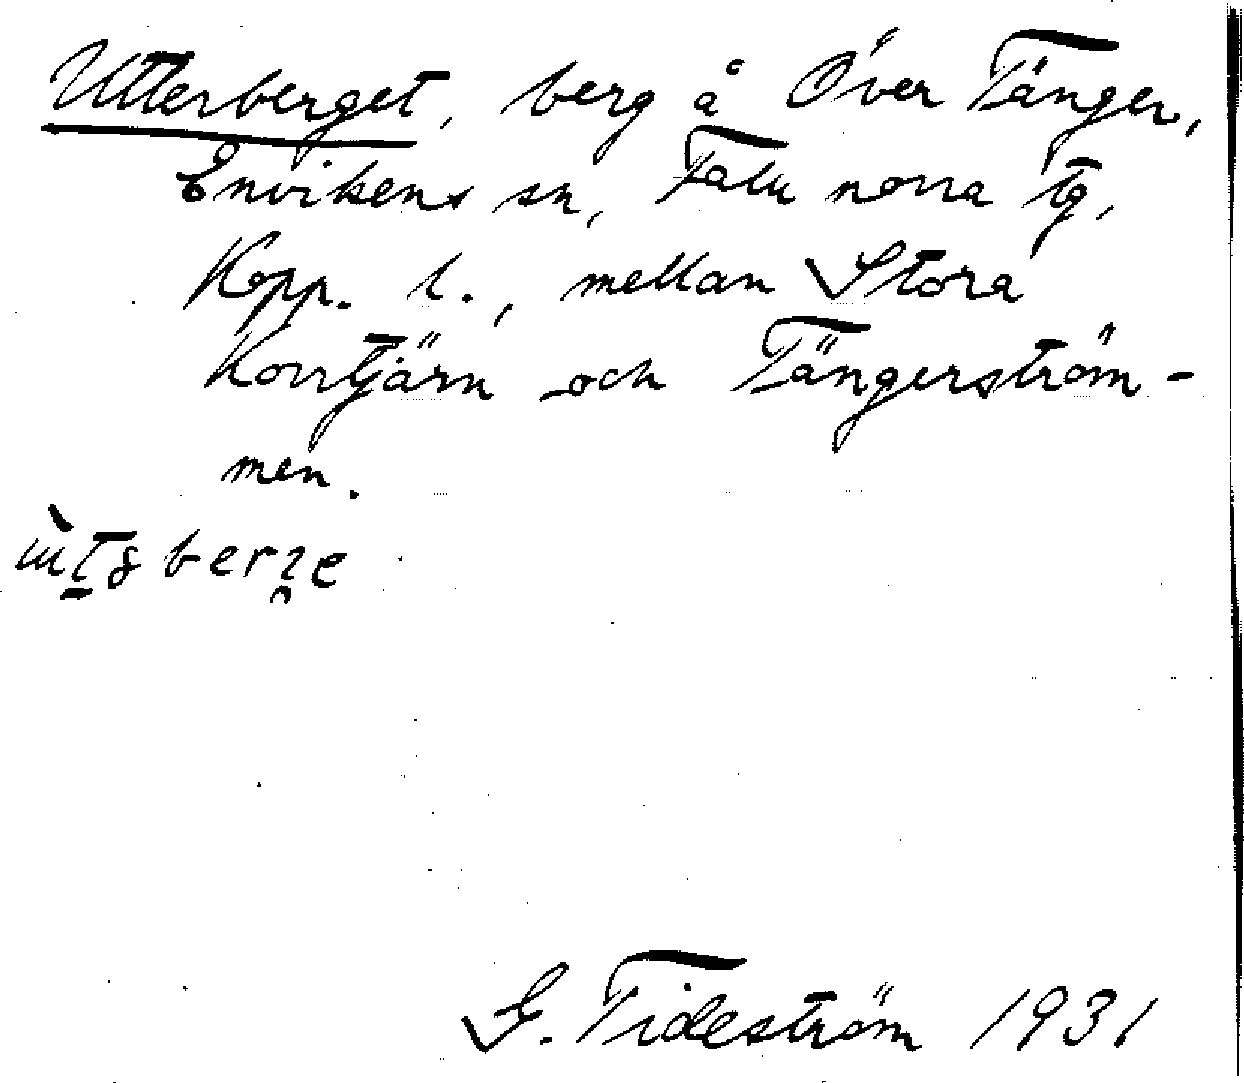 Utterberget, berg å Över Tänger,
Envikens sn, Falu norra tg,
Kopp. l., mellan Stora
Korrtjärn och Tängerström-
men.
G. Tideström 1931